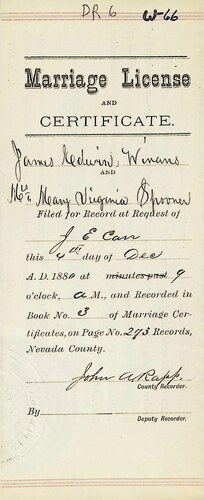 DR 6 W-66
Marriage License
AND
CERTIFICATE.
James Edwin Winans
AND
Mary Virginia Spooner
Filed for Record at Request of
J E Carr
this 4th day of Dec
A. D. 1880 at minutes past 9
o'clock, a M., and Recorded in
Book No. 3 of Marriage Cer-
tificates, on Page No. 273 Records,
Nevada County.
John A Rapp
County Recorder.
By
Deputy Recorder.